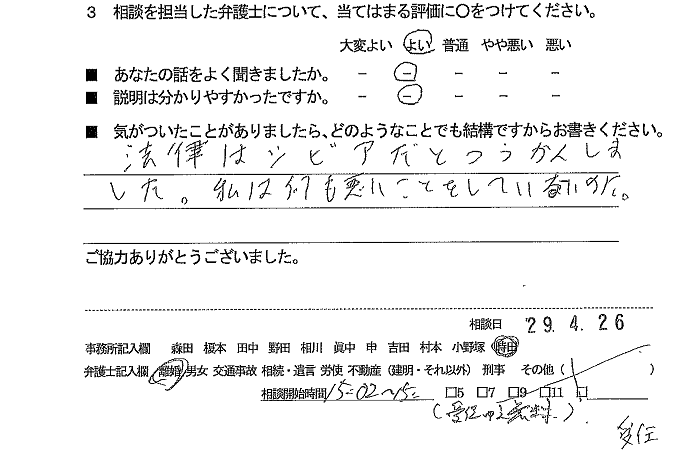 3 相談を担当した弁護士について、当てはまる評価に〇をつけてください。
大変よい よい 普通 やや悪い 悪い
■ あなたの話をよく聞きましたか。 － － － － －
■ 説明は分かりやすかったですか。 － － － － －
■ 気がついたことがありましたら、どのようなことでも結構ですからお書きください。
法律はシビアだとつうかんしま
した。私は何も悪いことをしていないのに。
ご協力ありがとうございました。
相談日 '29.4.26
事務所記入欄 森田 榎本 田中 野田 相川 眞中 申 吉田 村本 小野塚 時田
弁護士記入欄 離婚 男女 交通事故 相続・遺言 労使 不動産（建明・それ以外） 刑事 その他（ ）
相談開始時間 15:02～15: □5 □7 □9 □11 □
受任